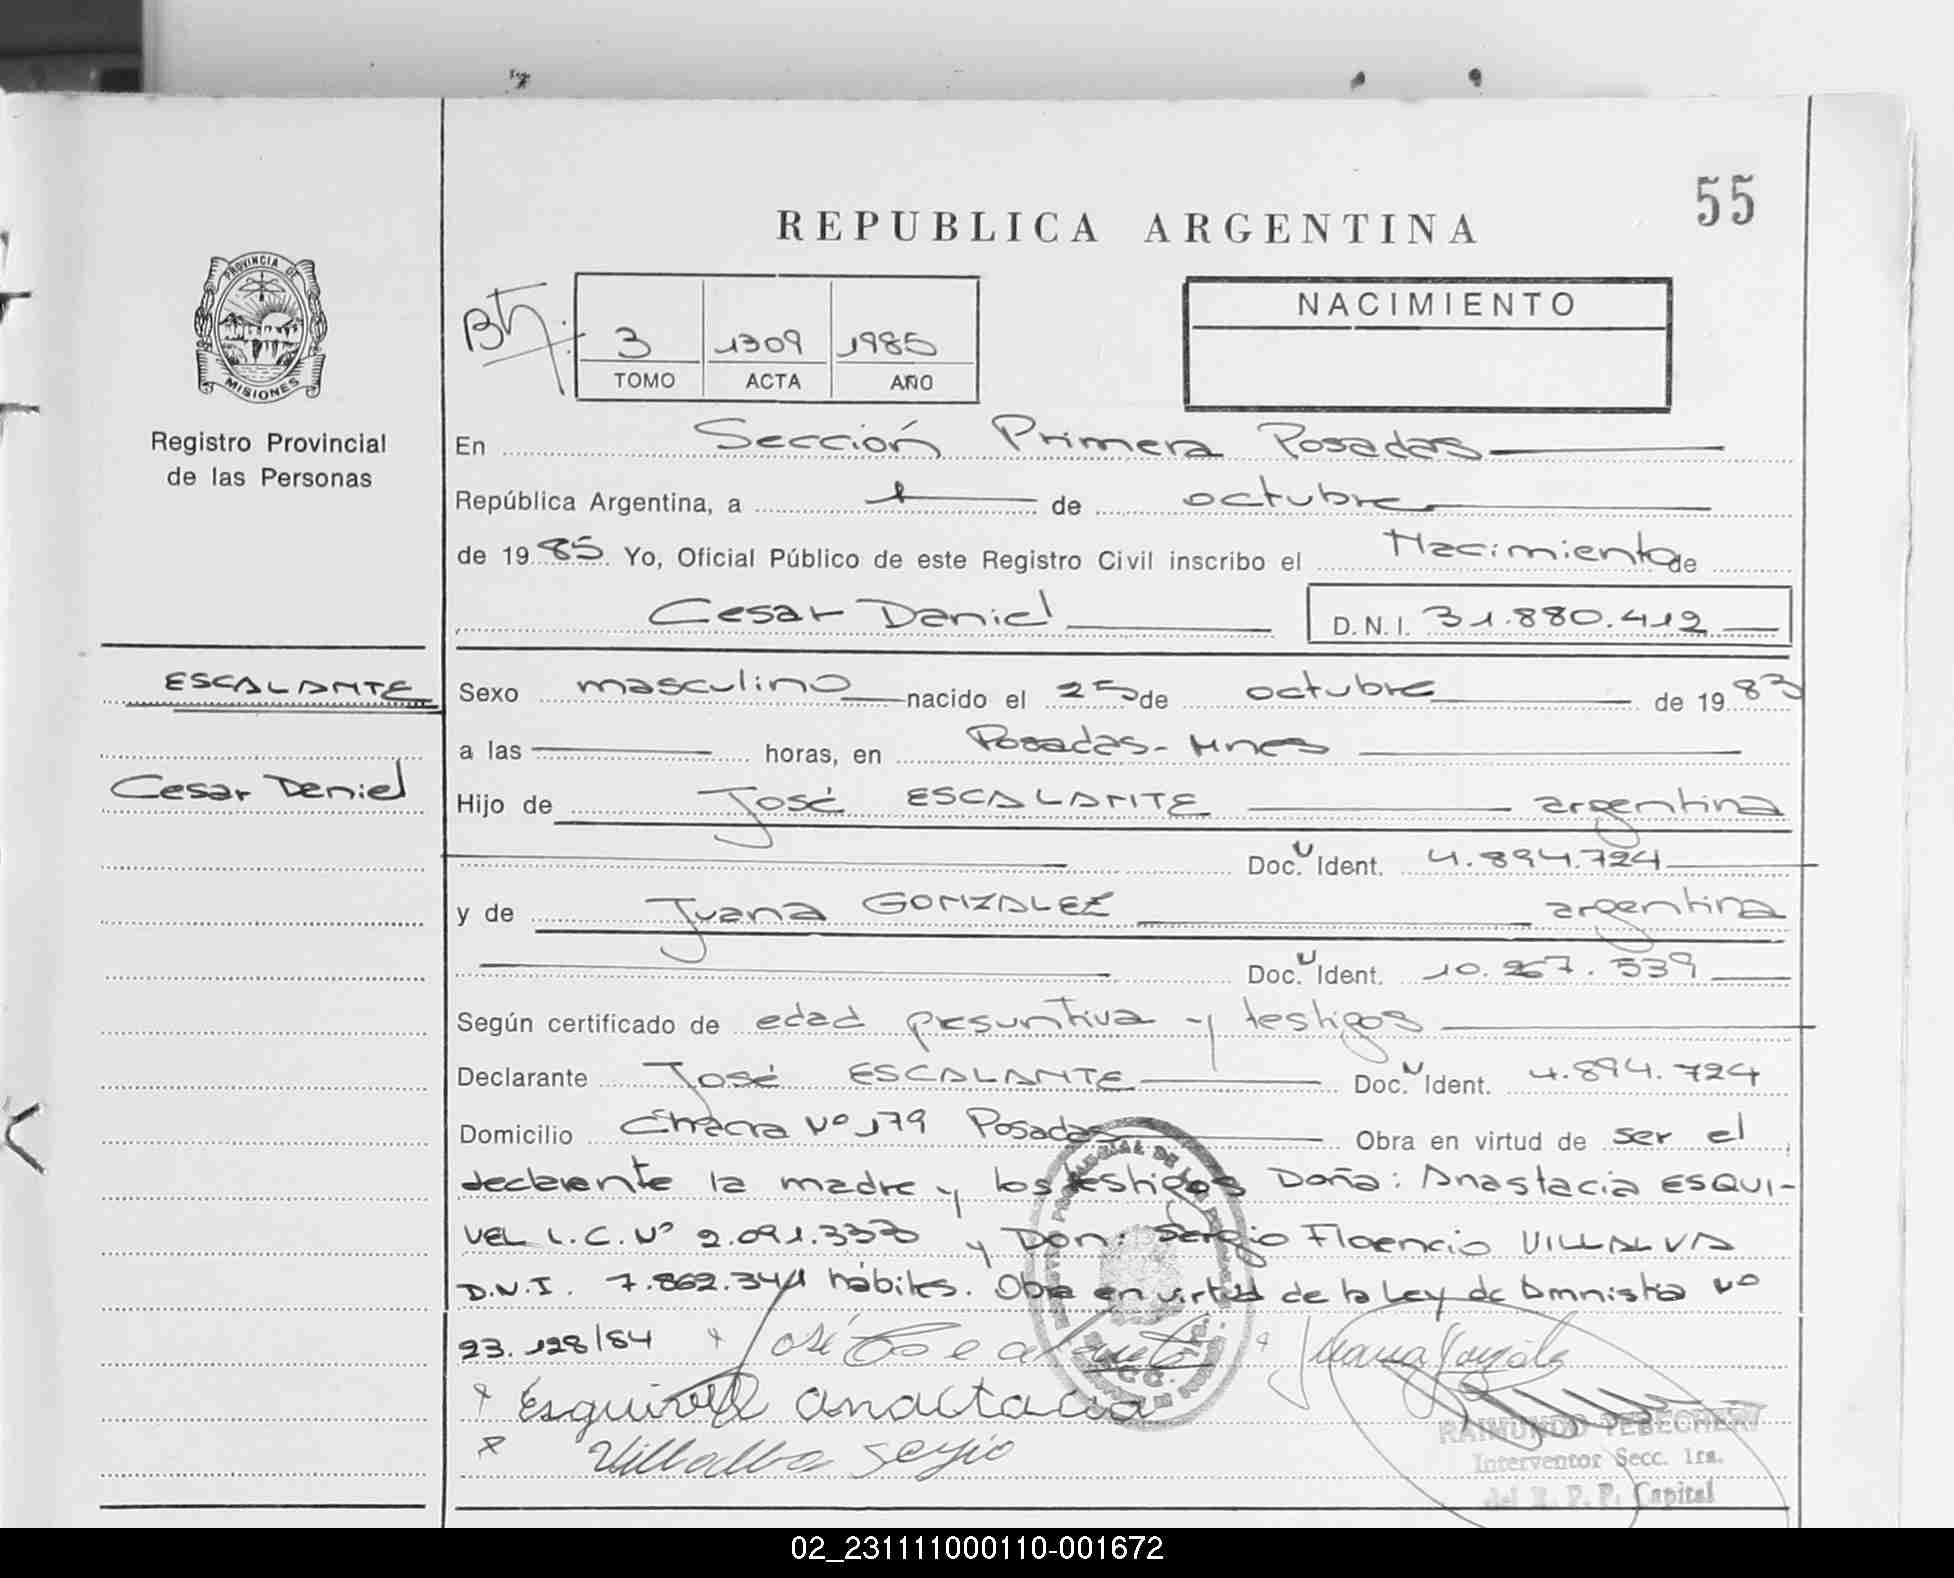 55
REPUBLICA ARGENTINA
PROVINCIA DE
MISIONES
Registro Provincial
de las Personas
3 1309 1985
TOMO ACTA AÑO
NACIMIENTO
En Sección Primera Posadas
República Argentina, a 1 de octubre
de 19 85 Yo, Oficial Público de este Registro Civil inscribo el Nacimiento de
Cesar Daniel D.N.I. 31.880.412
ESCALANTE
Cesar Daniel
Sexo masculino nacido el 25 de octubre de 19 83
a las horas, en Posadas - Mnes
Hijo de José ESCALANTE argentina
Doc. Ident. 4.894.724
y de Juana GONZALEZ argentina
Doc. Ident. 10.267.539
Según certificado de edad presuntiva y testigos
Declarante José ESCALANTE Doc. Ident. 4.894.724
Domicilio Chacra Nº 179 Posadas Obra en virtud de ser el
declarente la madre y los testigos Doña: Anastacia ESQUI-
VEL L.C. Nº 2.091.333 y Don: Sergio Florencio VILLALVA
D.N.I. 7.862.341 hábiles. Obra en virtud de la Ley de Amnistia Nº
23.128/84 José Escalante Juana Gonzalez
Esquivel anactacia
Villalba Sergio
RAIMUNDO
Interventor Secc. 1ra.
del R. P. P. Capital
02_231111000110-001672